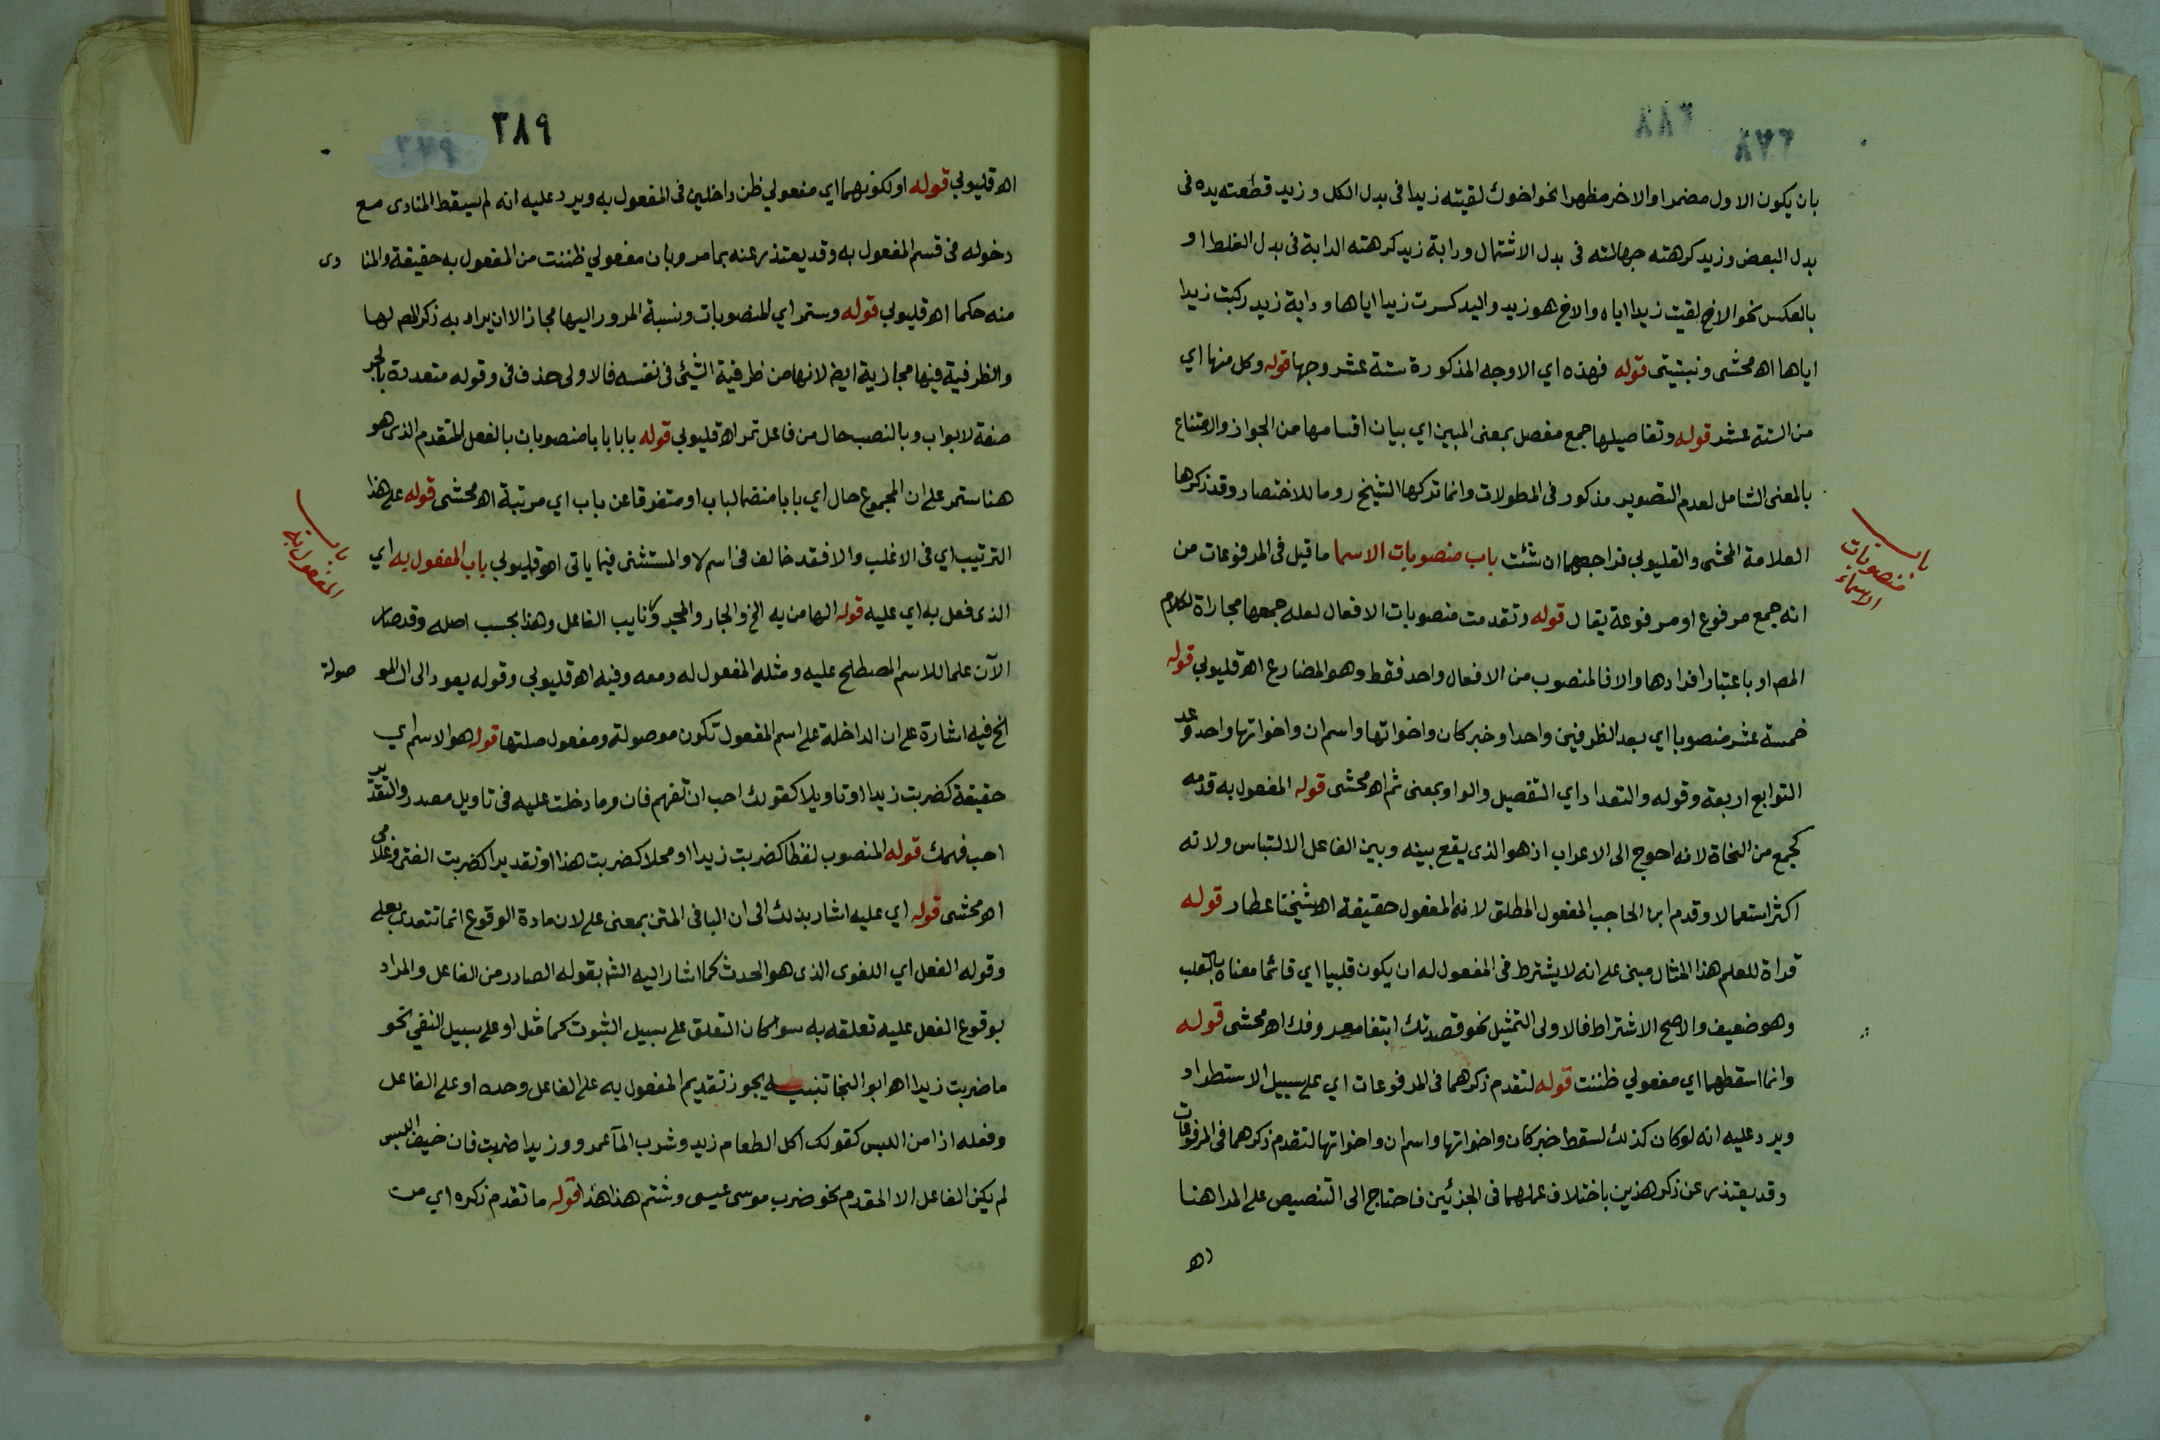 ٣٨٨
٢٧٨
بان يكون الاول مضمرا والاخر مظهرا نحو اخوك لقيته زيدا فى بدل الكل وزيد قطعته يده فى
بدل البعض وزيد كرهته جهالته فى بدل الاشتمال ودابة زيد كرهته الدابة فى بدل الغلط او
بالعكس نحو الاخ لقيت زيدا اياه والاخ هو زيد واليد كسرت زيدا اياها ودابة زيد ركبت زيدا
اياها اه محشى ونبتيتى قوله فهذه اي الاوجه المذكورة ستة عشر وجها قوله وكل منها اي
من الستة عشر قوله وتفاصيلها جمع مفصل بمعنى المبين اي بيان اقسامها من الجواز والامتناع
بالمعنى الشامل لعدم التصوير مذكور فى المطولات وانما تركها الشيخ روما للاختصار وقد ذكرها
باب منصوبات الاسماء
العلامة المحشى والقليوبي فراجعهما ان شئت باب منصوبات الاسما ما قيل فى المرفوعات من
انه جمع مرفوع او مرفوعة يقال قوله وتقدمت منصوبات الافعال لعله جمعها مجاراة لكلام
المص او باعتبار افرادها والا فالمنصوب من الافعال واحد فقط وهو المضارع اه قليوبي قوله
خمسة عشر منصوبا اي بعد الظرفين واحدا وخبر كان واخواتها واسم ان واخواتها واحد وعد
التوابع اربعة وقوله والتعداد اي التفصيل والواو بمعنى ثم اه محشى قوله المفعول به قدمه
كجمع من النحاة لانه احوج الى الاعراب اذ هو الذى يقع بينه وبين الفاعل الالتباس ولانه
اكثر استعمالا وقدم ابن الحاجب المفعول المطلق لانه المفعول حقيقة اه شيخنا عطار قوله
قراة للعلم هذا المثال مبنى على انه لا يشترط فى المفعول له ان يكون قلبيا اي قائما معناه بالقلب
وهو ضعيف والاصح الاشتراط فالاولى التمثيل بنحو قصدتك ابتغا معروفك اه محشى قوله
وانما اسقطهما اي مفعولي ظننت قوله لتقدم ذكرهما فى المرفوعات اي على سبيل الاستطراد
ويرد عليه انه لو كان كذلك لسقط خبر كان واخواتها واسم ان واخواتها لتقدم ذكرهما فى المرفوعات
وقد يعتذر عن ذكر هذين باختلاف عملهما فى الجزئين فاحتاج الى التنصيص على المراد هنا
اه
٣٨٩
اه قليوبي قوله او لكونهما اي مفعولي ظن داخلين فى المفعول به ويرد عليه انه لم يسقط المنادى مع
دخوله فى قسم المفعول به وقد يعتذر عنه بما مر وبان مفعولي ظننت من المفعول به حقيقة والمنادى
منه حكما اه قليوبي قوله وستمر اي المنصوبات ونسبة المرور اليها مجاز الا ان يراد به ذكر المص لها
والظرفية فيها مجازية ايض لانها من ظرفية الشيئ فى نفسه فالاولى حذف فى وقوله متعددة بالجر
صفة لابواب وبالنصب حال من فاعل تمر اه قليوبي قوله بابا بابا منصوبان بالفعل المتقدم الذى هو
هنا ستمر على ان المجموع حال اي بابا منضما لباب او متفرقا عن باب اي مرتبة اه محشى قوله على هذا
باب المفعول به
الترتيب اي فى الاغلب والا فقد خالف فى اسم لا والمستثنى فيما ياتى اه قليوبي باب المفعول به اي
الذى فعل به اي عليه قوله الها من به الخ والجار والمجرور نايب الفاعل وهذا بحسب اصله وقد صار
الآن علما للاسم المصطلح عليه ومثله المفعول له ومعه وفيه اه قليوبي وقوله يعود الى ال الموصولة
الخ فيه اشارة على ان الداخلة على اسم المفعول تكون موصولة ومفعول صلتها قوله هو الاسم اي
حقيقة كضربت زيدا او تاويلا كقولك احب ان تفهم فان وما دخلت عليه فى تاويل مصدر والتقدير
احب فهمك قوله المنصوب لفظا كضربت زيدا او محلا كضربت هذا او تقديرا كضربت الفتى وغلامى
اه محشى قوله اي عليه اشار بذلك الى ان البا فى المتن بمعنى على لان مادة الوقوع انما تتعدى بعلى
وقوله الفعل اي اللغوى الذى هو الحدث كما اشار اليه الش بقوله الصادر من الفاعل والمراد
بوقوع الفعل عليه تعلقه به سوا كان التعلق على سبيل الثبوت كما مثل او على سبيل النفي نحو
ما ضربت زيدا اه ابو النجا تنبيه يجوز تقديم المفعول به على الفاعل وحده او على الفاعل
وفعله اذا امن اللبس كقولك اكل الطعام زيد وشرب المآ عمرو وزيدا ضربت فان خيف اللبس
لم يكن الفاعل الا المقدم نحو ضرب موسى عيسى وشتم هذا هذا قوله ما تقدم ذكره اي من